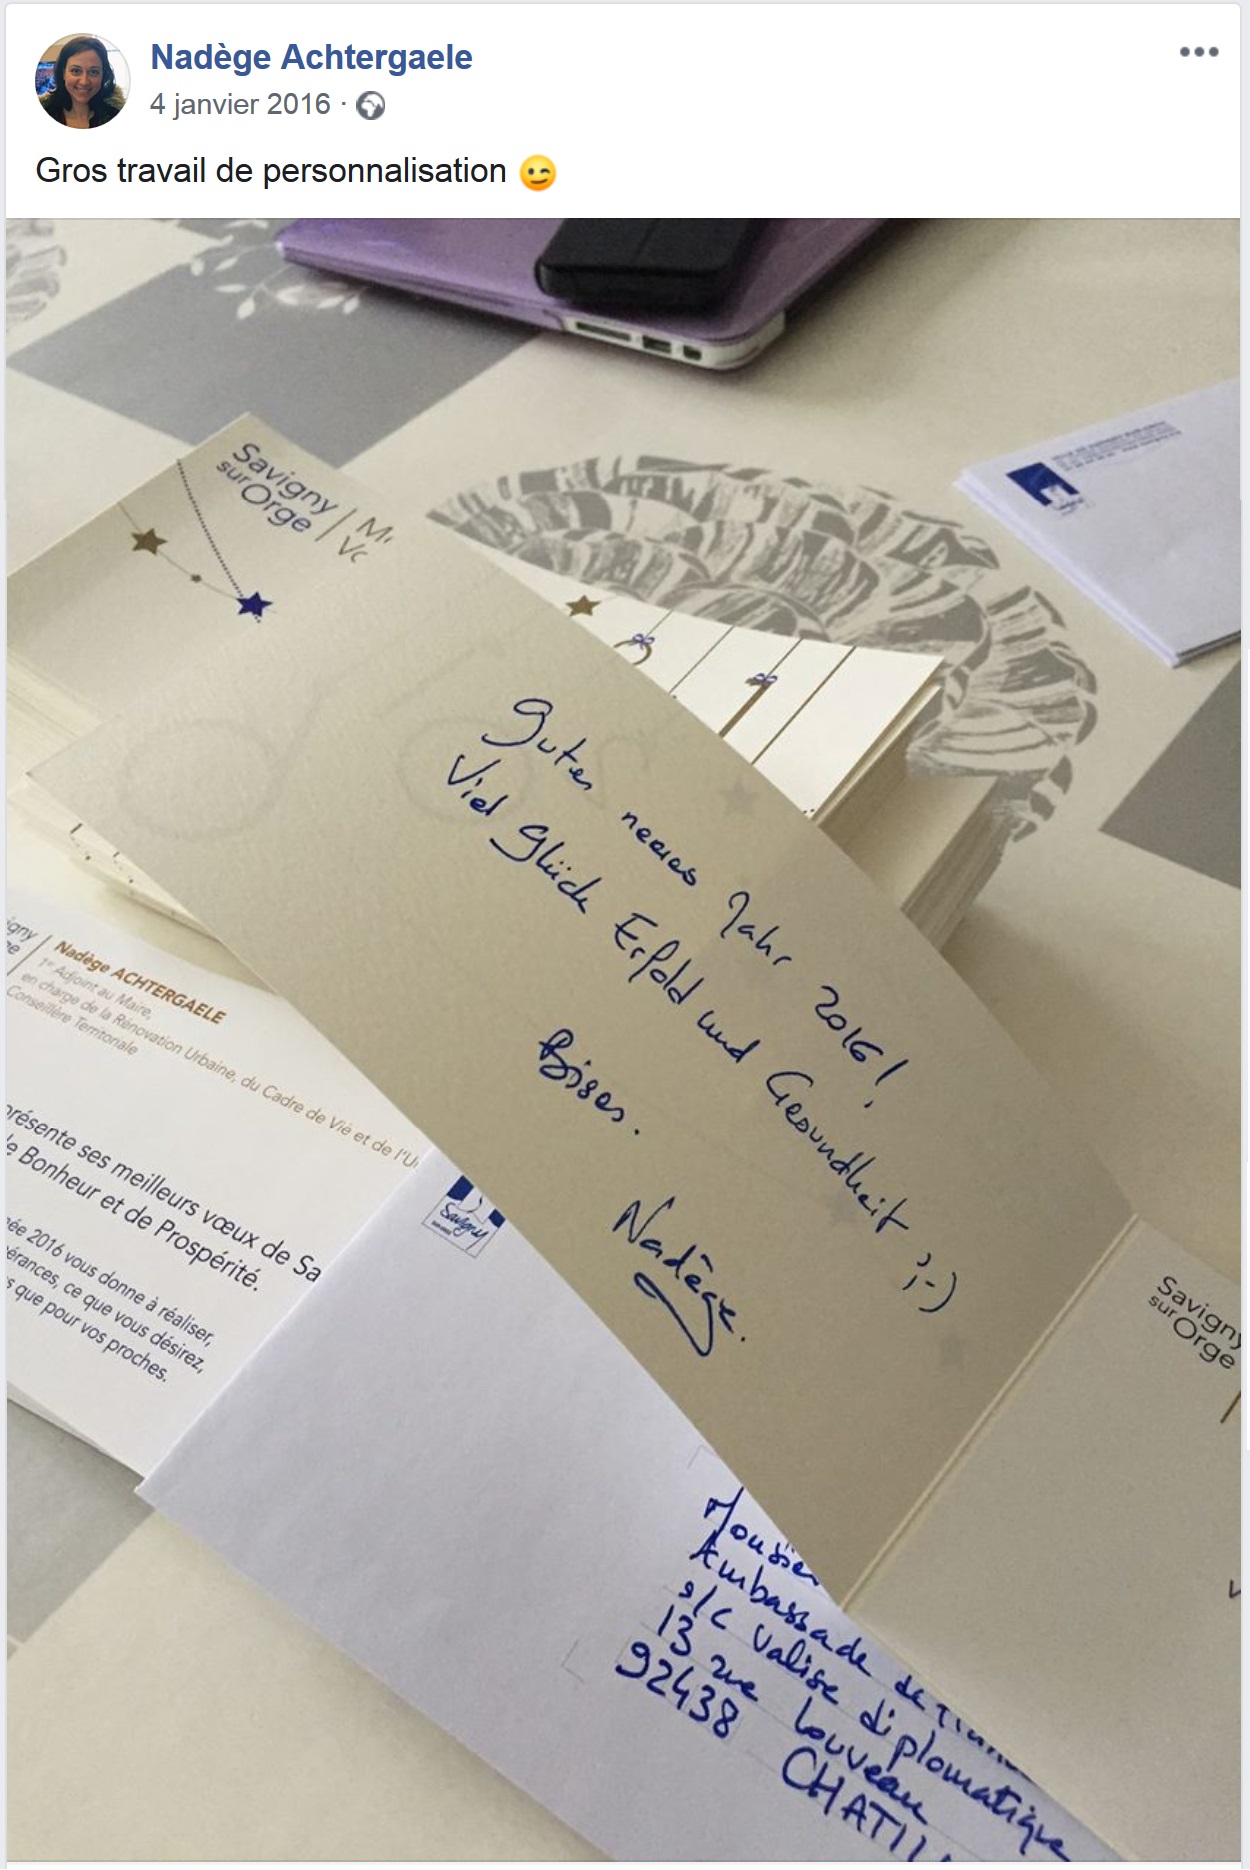 Nadège Achtergaele
4 janvier 2016 ·
Gros travail de personnalisation 😉
Savigny
sur Orge
Gutes neues Jahr 2016!
Viel Glück Erfold und Gesundheit ;-)
Bises.
Nadège.
Nadège ACHTERGAELE
1er Adjoint au Maire,
en charge de la Rénovation Urbaine, du Cadre de Vie et de l'U
Conseillère Territoriale
présente ses meilleurs vœux de Sa
de Bonheur et de Prospérité.
ée 2016 vous donne à réaliser,
érances, ce que vous désirez,
s que pour vos proches.
Savigny
Savigny
sur Orge
Monsieur
Ambassade de
s/c valise diplomatique
13 rue Louveau
92438 CHATILL